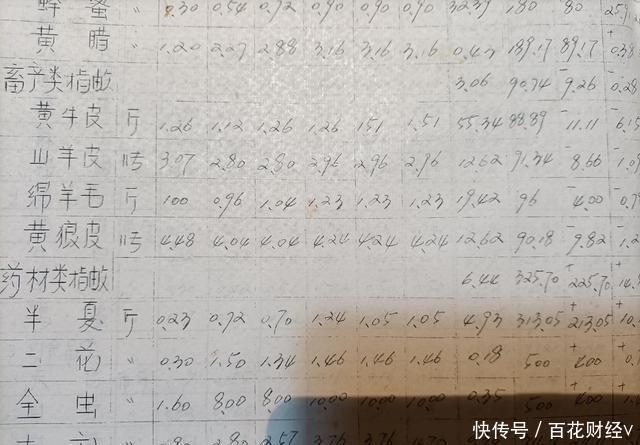 蜂蜜 〃 0.30 0.54 0.72 0.90 0.90 0.90 32.39 180 80
黄腊 〃 1.20 2.27 2.88 3.16 3.16 3.16 0.43 189.17 89.17
畜产类指数 3.06 90.74 -9.26 -0.28
黄牛皮 斤 1.26 1.12 1.26 1.26 1.51 1.51 55.34 88.89 -11.11
山羊皮 3.07 2.80 2.80 2.96 2.96 2.96 12.62 91.34 -8.66
绵羊毛 斤 100 0.96 1.04 1.23 1.23 1.23 19.42 96 -4.00
黄狼皮 4.48 4.04 4.04 4.24 4.24 4.24 12.62 90.18 -9.82
药材类指数 6.44 325.70 +225.70
半夏 斤 0.23 0.72 0.70 1.24 1.05 1.05 4.93 313.05 +213.05
二花 〃 0.30 1.50 1.34 1.46 1.46 1.46 0.18 500 +400
全虫 〃 1.60 8.00 8.00 10.00 10.00 10.00 0.35 500 +400
2.80 2.57 3.76 3.76
快传号/百花财经v